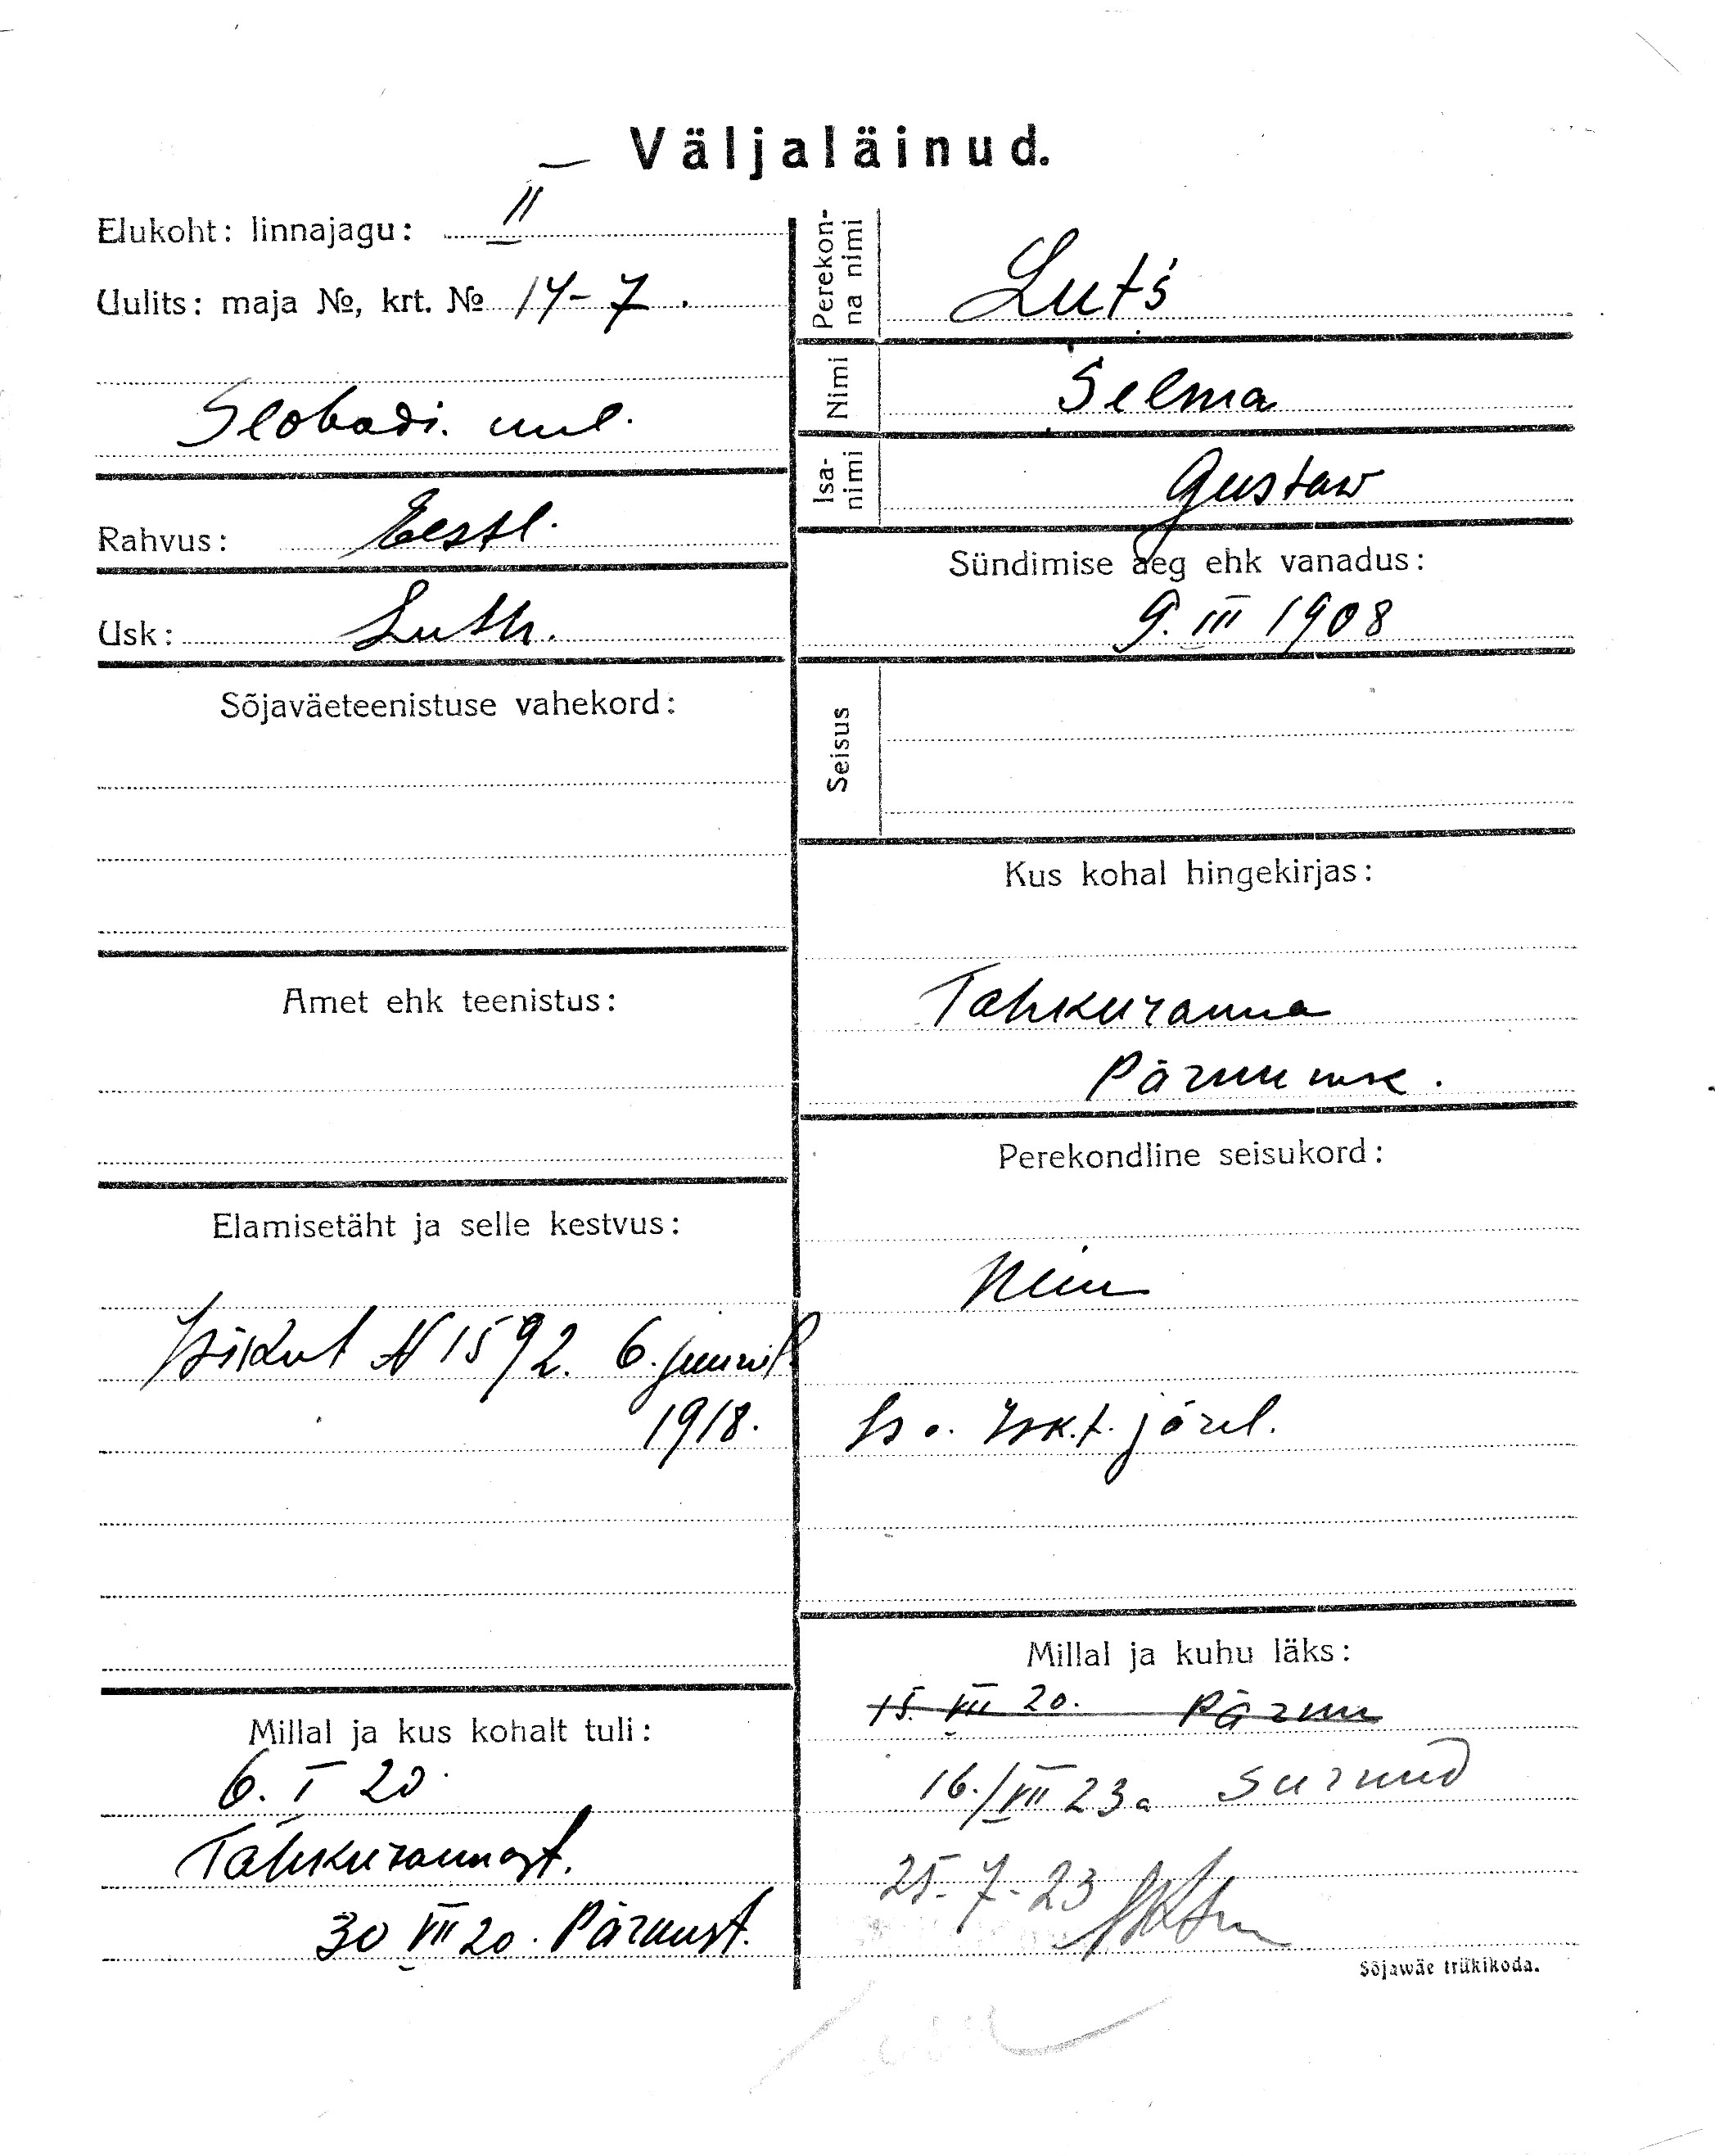 Väljaläinud.
Elukoht: linnajagu: II
Uulits: maja №, krt. № 14-7.
Slobodi. uul.
Rahvus: Eestl.
Usk: Luth.
Sõjaväeteenistuse vahekord:
Amet ehk teenistus:
Elamisetäht ja selle kestvus:
Isikut N 1592. 6. juunil
1918.
Millal ja kus kohalt tuli:
6. I 20.
Tahkurannast.
30 VII 20. Pärnust.
Perekonna nimi
Luts
Nimi
Selma
Isanimi
Gustaw
Sündimise aeg ehk vanadus:
9. III 1908
Seisus
Kus kohal hingekirjas:
Tahkuranna
Pärnu mk.
Perekondline seisukord:
Isk.t. järel.
Millal ja kuhu läks:
15. VII 20. Pärnu
16./VII 23a surnud
25-7-23
Sõjawäe trükikoda.